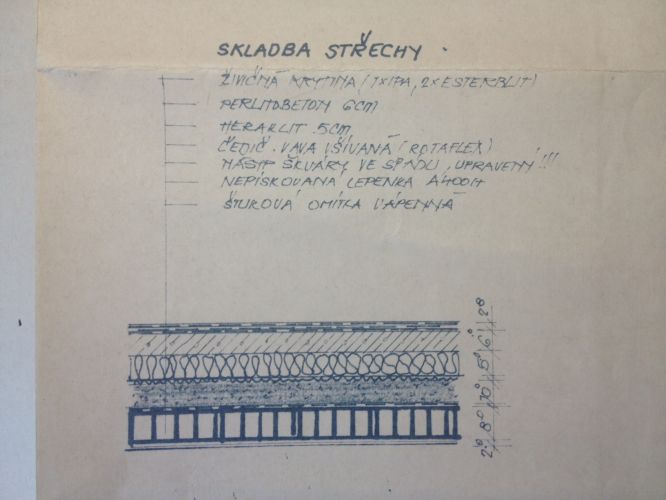 SKLADBA STŘECHY
ŽIVIČNÁ KRYTINA (1×IPA, 2×ESTERBLIT)
PERLITOBETON 6CM
HERAKLIT 5CM
ČEDIČ. VAVA VŠÍVANÁ (ROTAFLEX)
NÁSYP ŠKVÁRY VE SPÁDU, UPRAVENÝ!!!
NEPÍSKOVANÁ LEPENKA A400H
ŠTUKOVÁ OMÍTKA VÁPENNÁ
2⁰ 8⁰ 10⁰ 5⁰ 6⁰ 2⁰